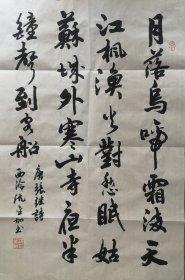 月落烏啼霜滿天
江楓漁火對愁眠姑
蘇城外寒山寺夜半
鐘聲到客船
唐張繼詩
西泠
書